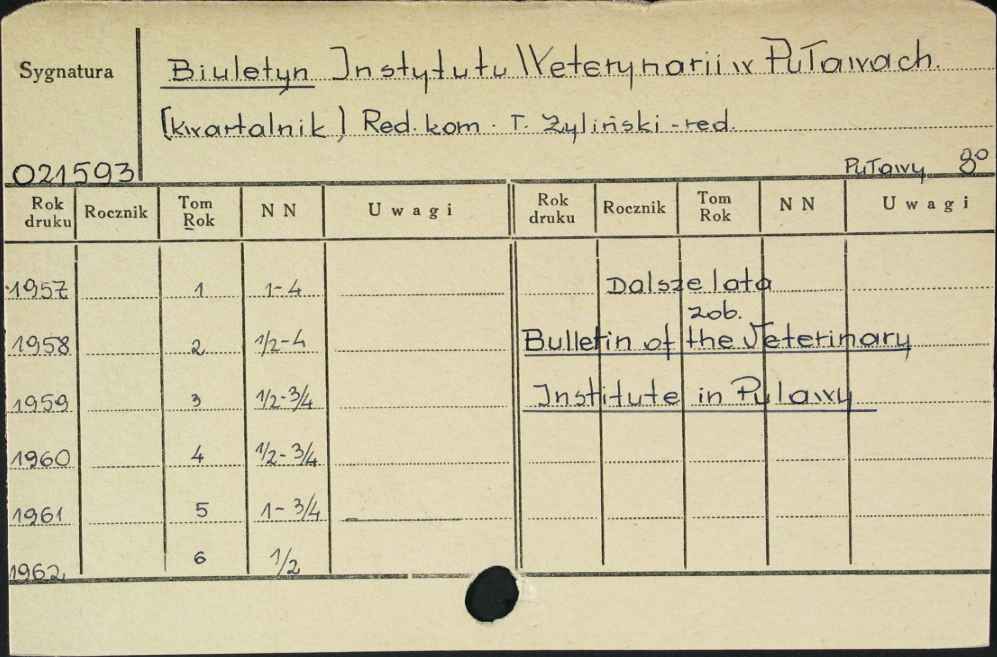 Sygnatura
Biuletyn Instytutu Weterynarii w Puławach.
(kwartalnik) Red. kom. T. Żyliński - red.
021593
Puławy 8°
Rok druku Rocznik Tom Rok N N U w a g i Rok druku Rocznik Tom Rok N N U w a g i
1957 1 1-4
1958 2 1/2-4
1959 3 1/2-3/4
1960 4 1/2-3/4
1961 5 1-3/4 —
1962 6 1/2
Dalsze lata
zob.
Bulletin of the Veterinary
Institute in Pulawy